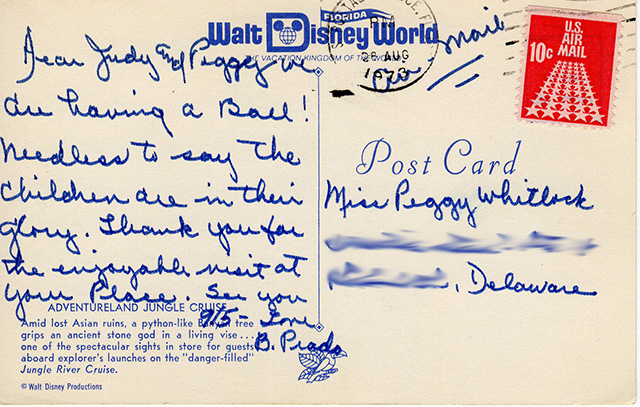 FLORIDA
Walt Disney World
THE VACATION KINGDOM OF THE WORLD
PM
26 AUG
Air Mail
U.S.
AIR
MAIL
10c
Dear Judy and Peggy we
are having a Ball!
Needless to say the
children are in their
glory. Thank you for
the enjoyable visit at
your Place. See you
9/5- Love
B. Prado
Post Card
Miss Peggy Whitlock
, Delaware
ADVENTURELAND JUNGLE CRUISE
Amid lost Asian ruins, a python-like Banyan tree
grips an ancient stone god in a living vise...
one of the spectacular sights in store for guests
aboard explorer's launches on the "danger-filled"
Jungle River Cruise.
© Walt Disney Productions